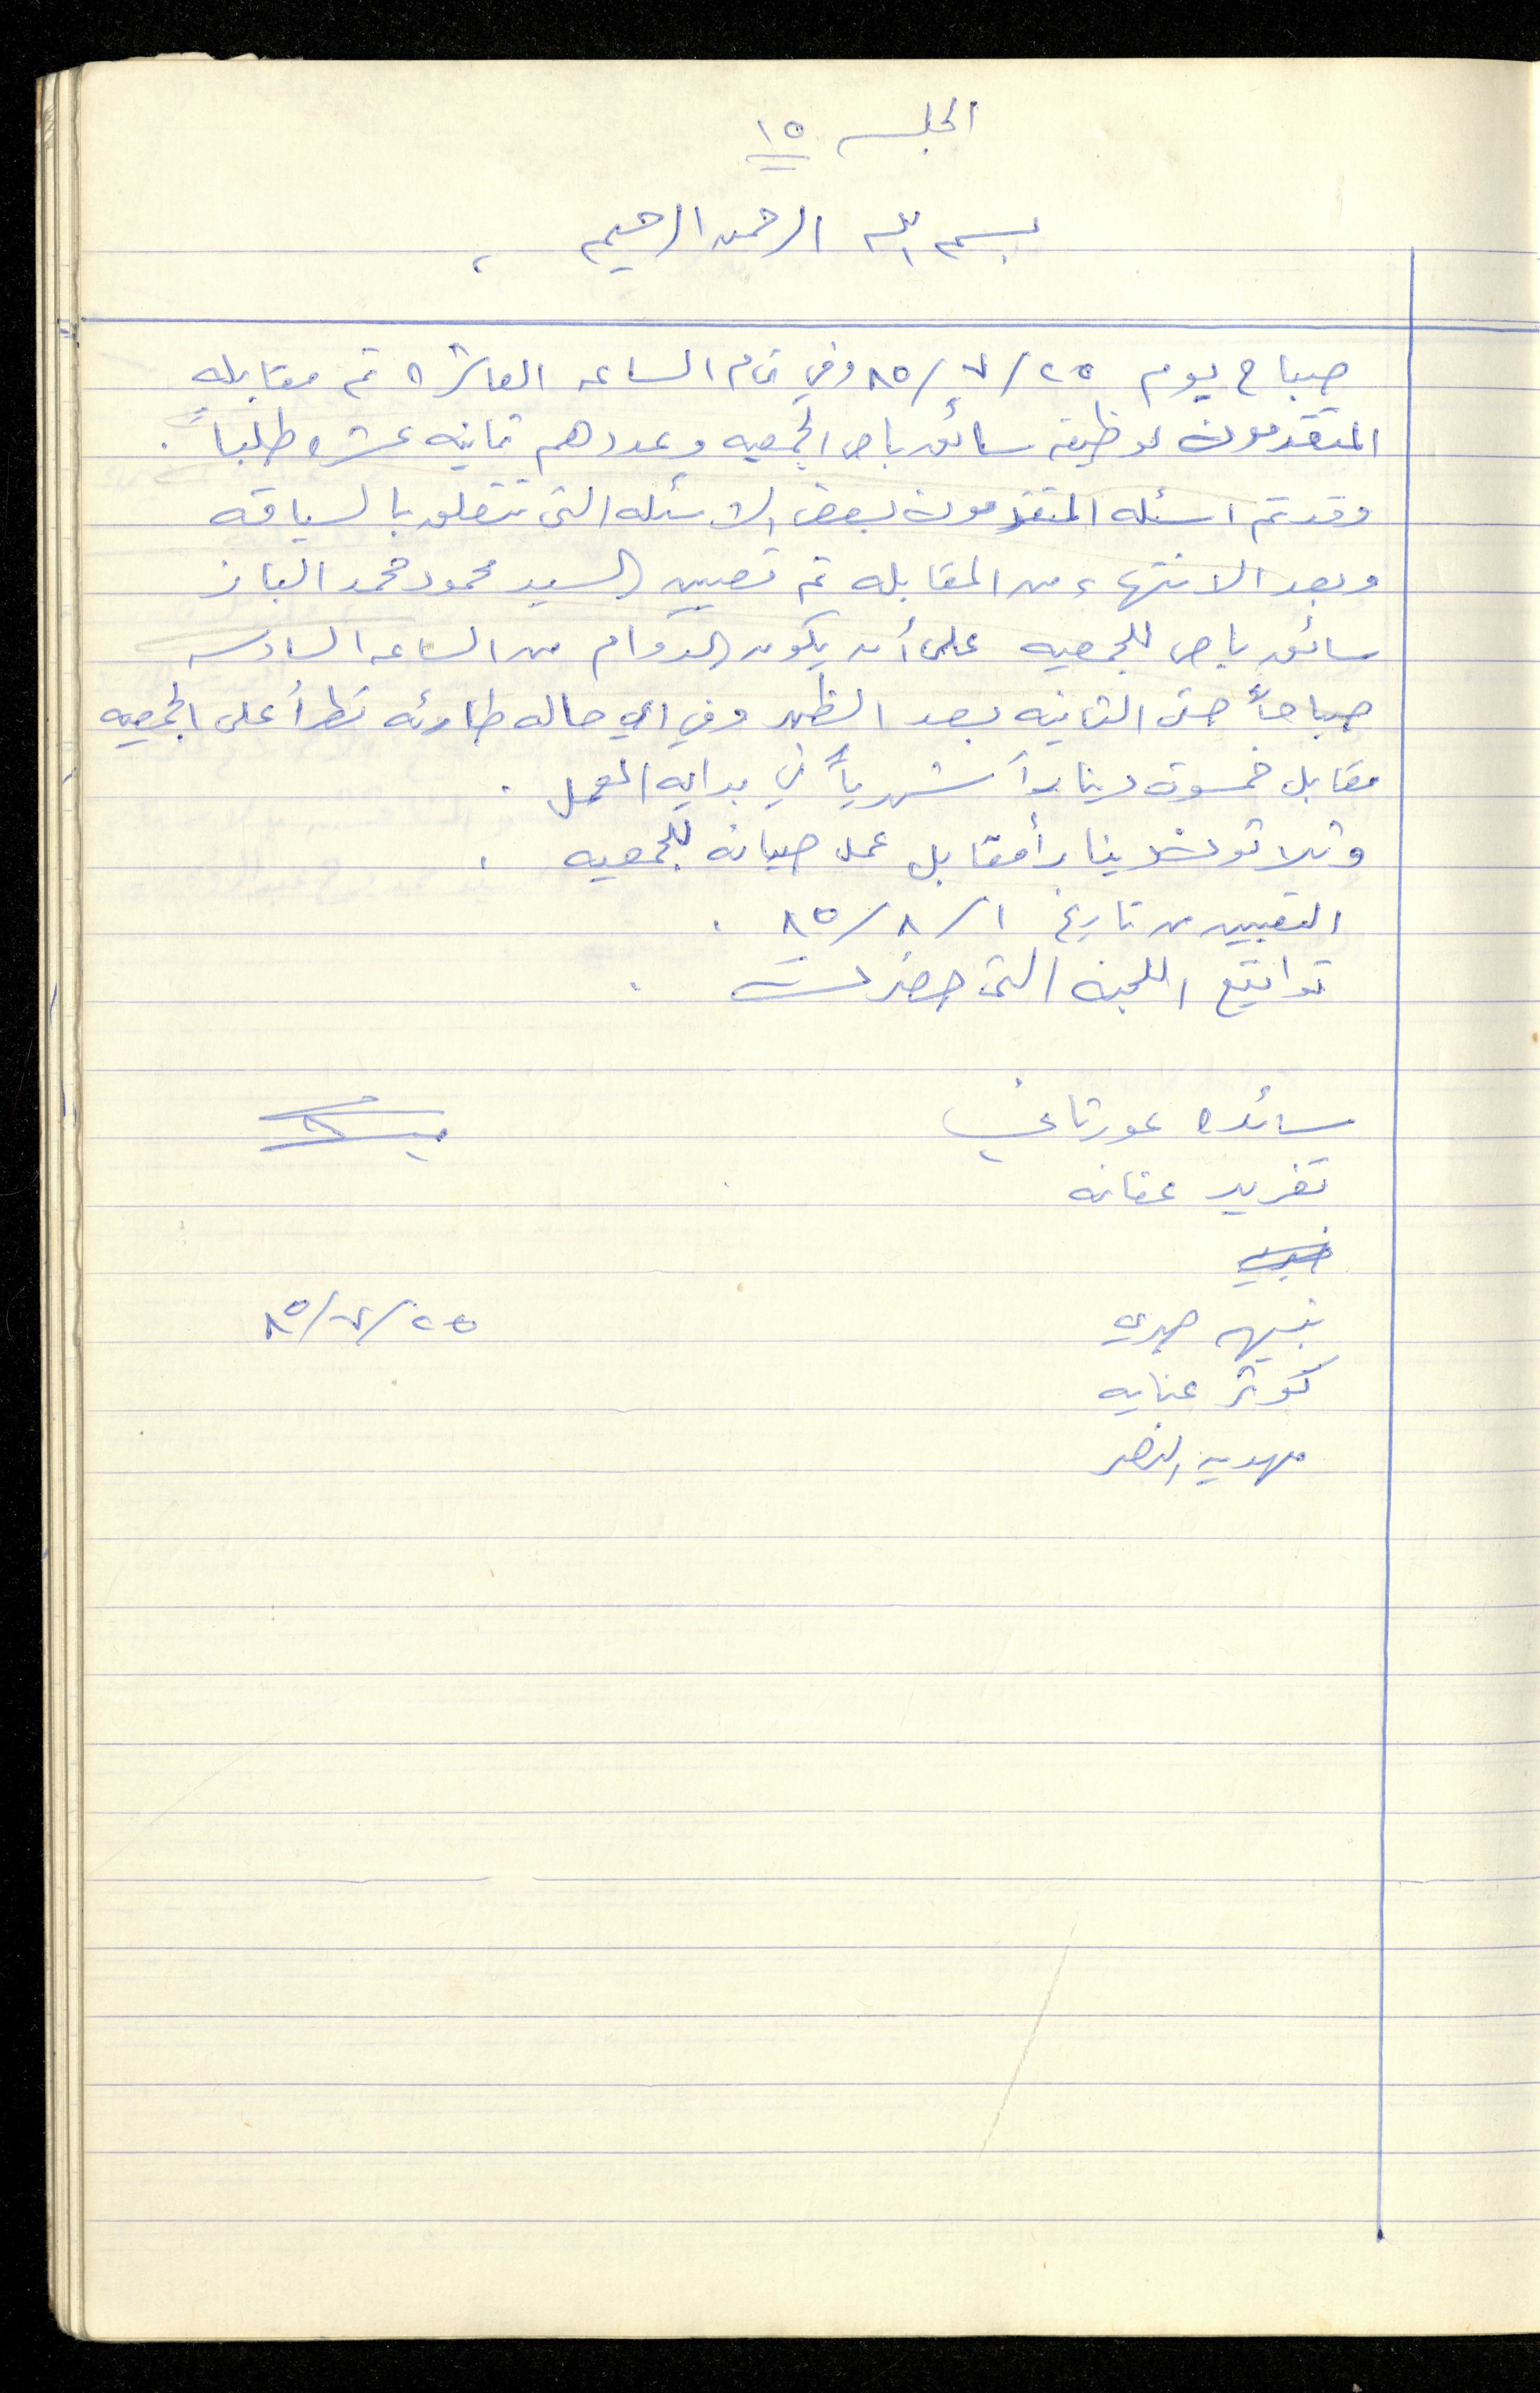 الجلسه ١٥
بسم الله الرحمن الرحيم ،
صباح يوم ٢٥/٧/٨٥ وفي تمام الساعه العاشره تم مقابله
المتقدمون لوظيفة سائق باص الجمعيه وعددهم ثمانيه عشره طلباً .
وقد تم اسئله المتقدمون بعض الاسئله التي تتعلق بالسياقه
وبعد الانتهاء من المقابله تم تعيين السيد محمود محمد الباز
سائق باص للجمعيه على أن يكون الدوام من الساعه السادسه
صباحاً حتى الثانيه بعد الظهر وفي اي حاله طارئه تطرأ على الجمعيه
مقابل خمسون ديناراً شهرياً في بدايه العمل .
وثلاثون ديناراً مقابل عمل صيانه للجمعيه .
التعيين من تاريخ ١/٨/٨٥ .
تواقيع اللجنه التي حضرت .
سائده عورتاني
تغريد عقانه
نبيه صبري ٢٥/٧/٨٥
كوثر عنايه
مهديه النصر